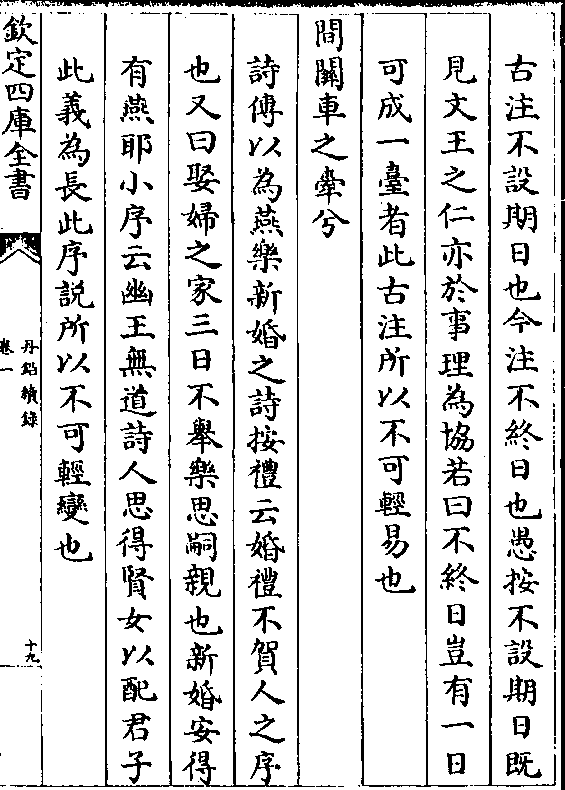 古注不設期日也今注不終日也愚按不設期日既
見文王之仁亦於事理為協若曰不終日豈有一日
可成一臺者此古注所以不可輕易也
間關車之舝兮
詩傳以為燕樂新婚之詩按禮云婚禮不賀人之序
也又曰娶婦之家三日不舉樂思嗣親也新婚安得
有燕耶小序云幽王無道詩人思得賢女以配君子
此義為長此序説所以不可輕變也
欽定四庫全書
丹鉛續錄
卷一
十九